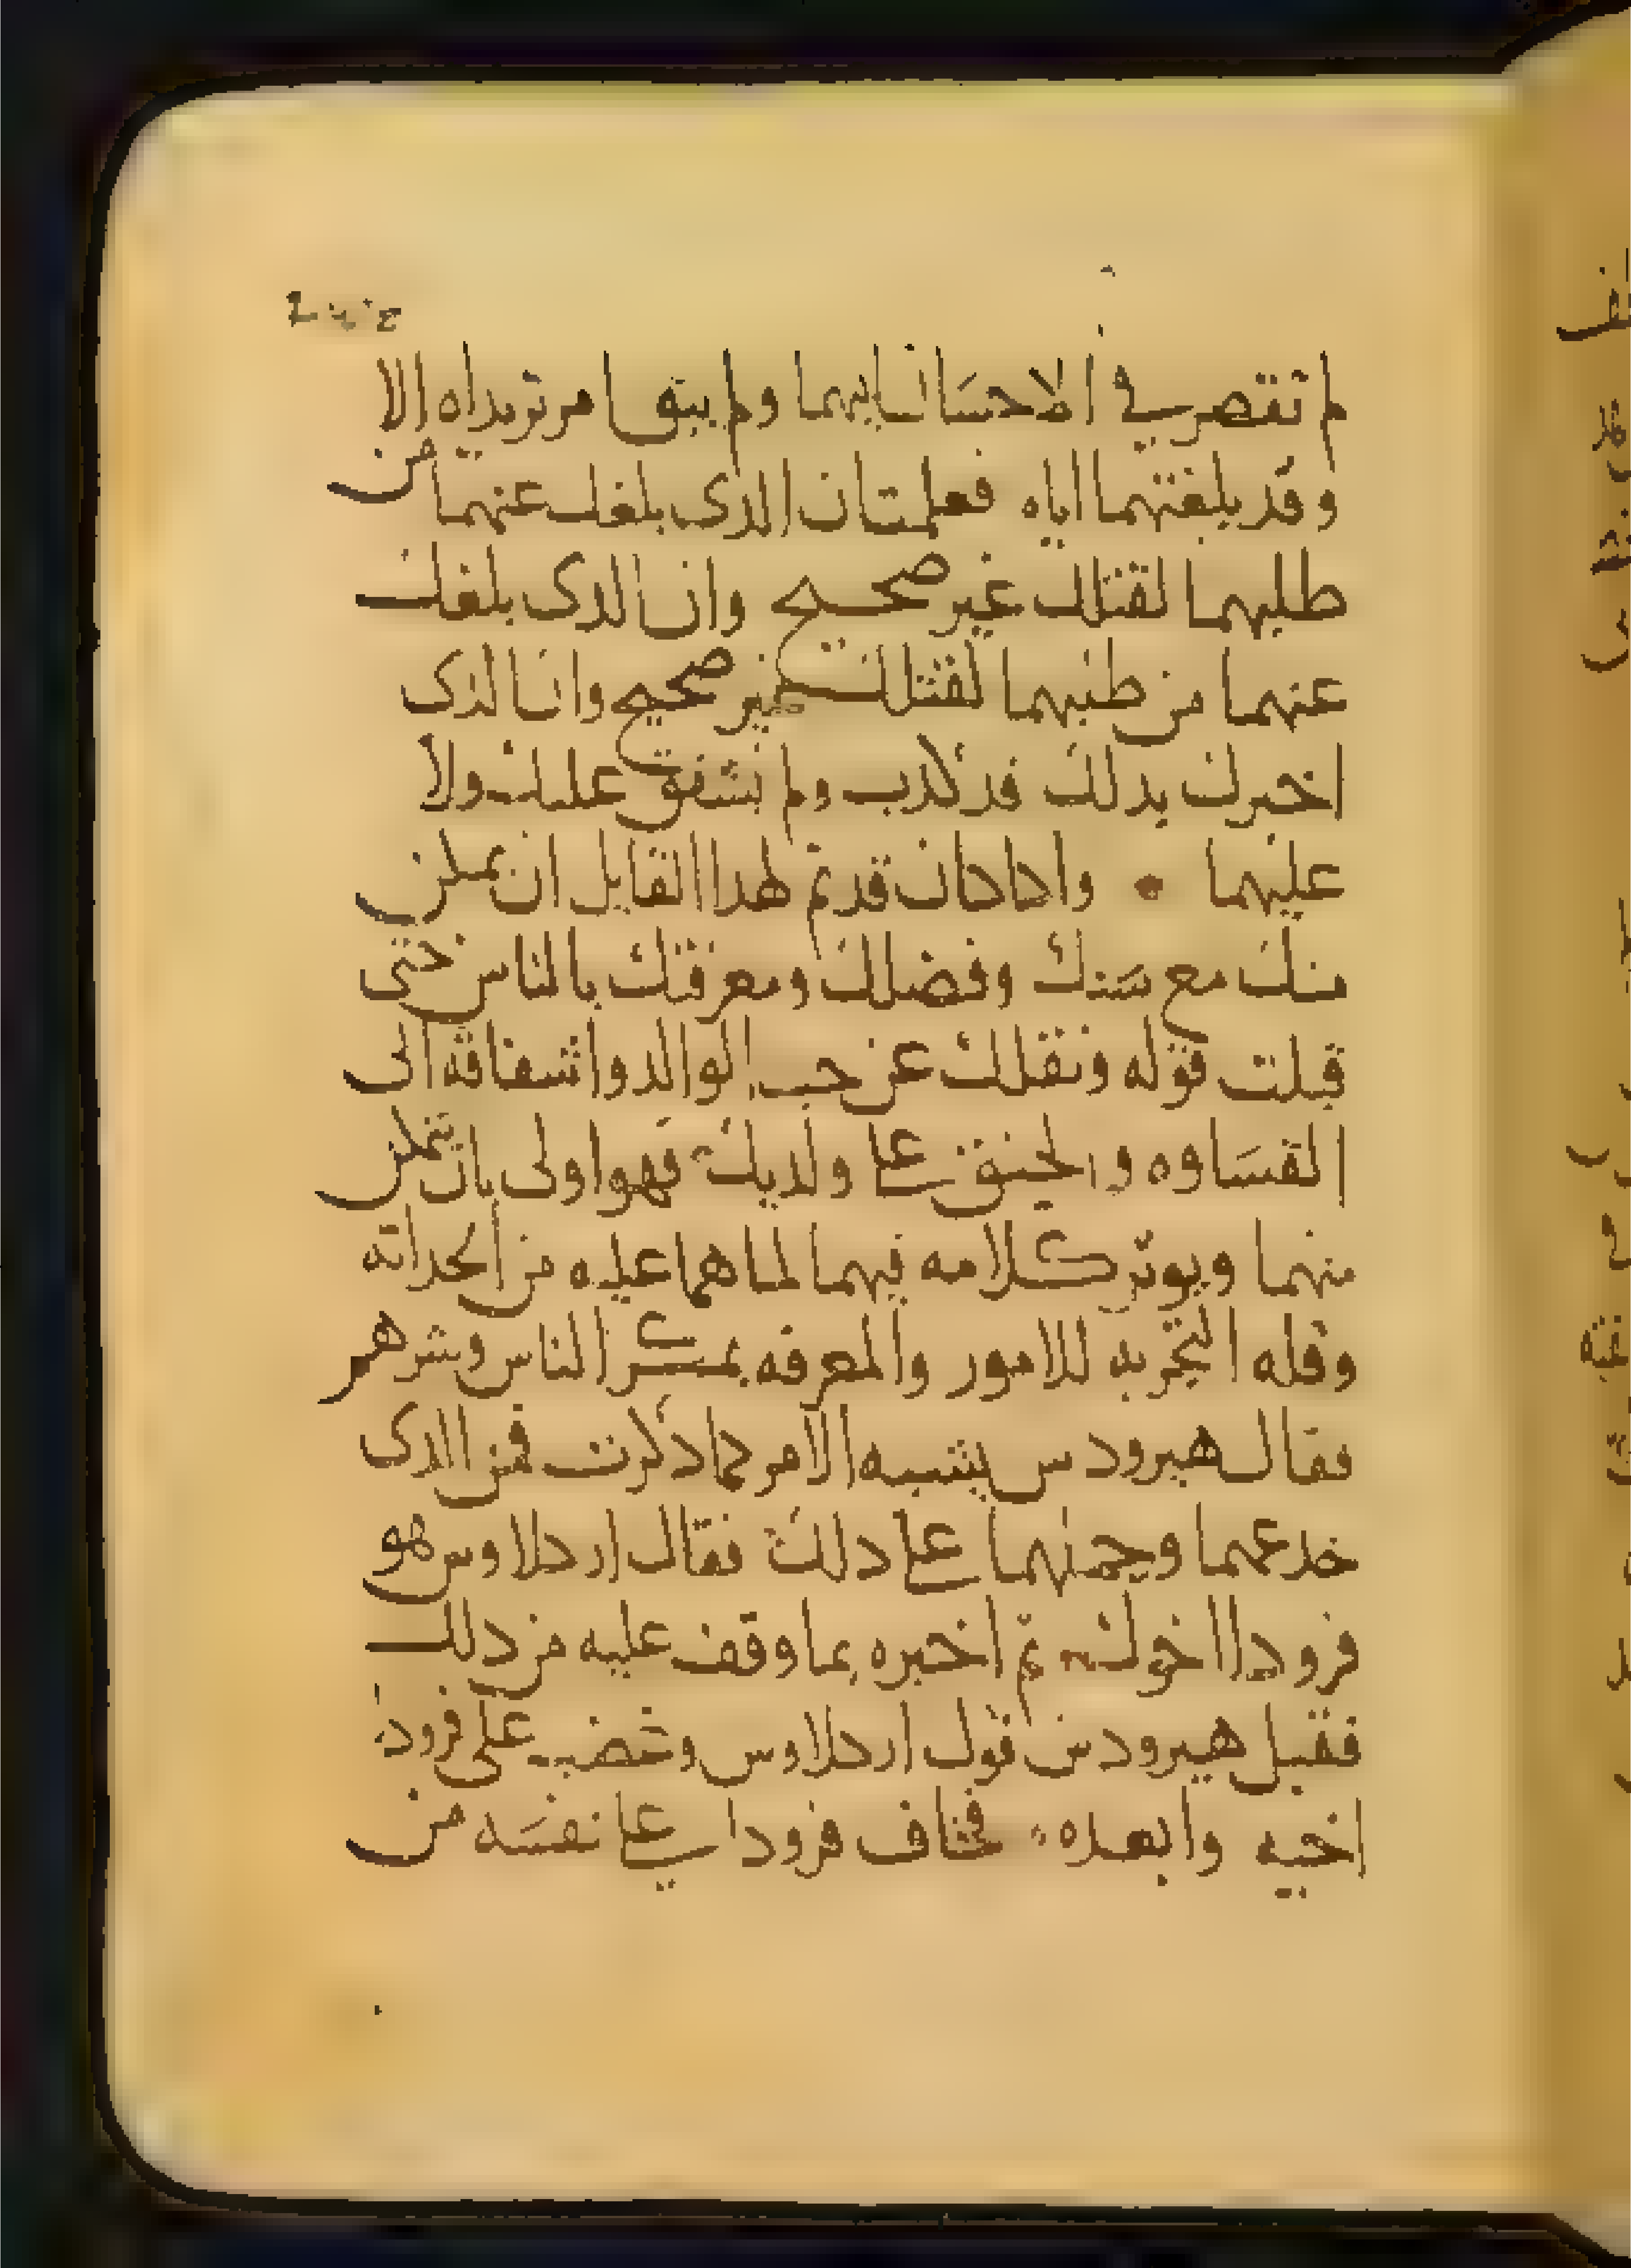 لم تقصر في الاحسان اليهما ولم يبق امر تريداه الا
وقد بلغتهما اياه فعلمت ان الدى بلغك عنهما من
طلبهما لقتلك غير صحيح وان الدى بلغك
عنهما من طلبهما لقتلك غير صحيح وان الدى
اخبرك بدلك قد كدب ولم يشفق عليك ولا
عليهما وادا كان قد تم لهدا القايل ان يمكن
منك مع سنك وفضلك ومعرفتك بالناس حتى
قبلت قوله ونقلك عن حب الوالد واشفاقه الى
القساوه والحنق على ولديك فهو اولى بان يتمكن
منهما ويوتر كلامه فيهما لما هما عليه من الحداثه
وقله التجربه للامور والمعرفه بمكر الناس وشرهم
فقال هيرودس يشبه الامر كما دكرت فمن الدى
خدعهما وحملهما على دلك فقال اركلاوس هو
فرودا اخوك ثم اخبره بما وقف عليه من دلك
فقبل هيرودس قول اركلاوس وغضب على فرودا
اخيه وابعده فخاف فرودا على نفسه من